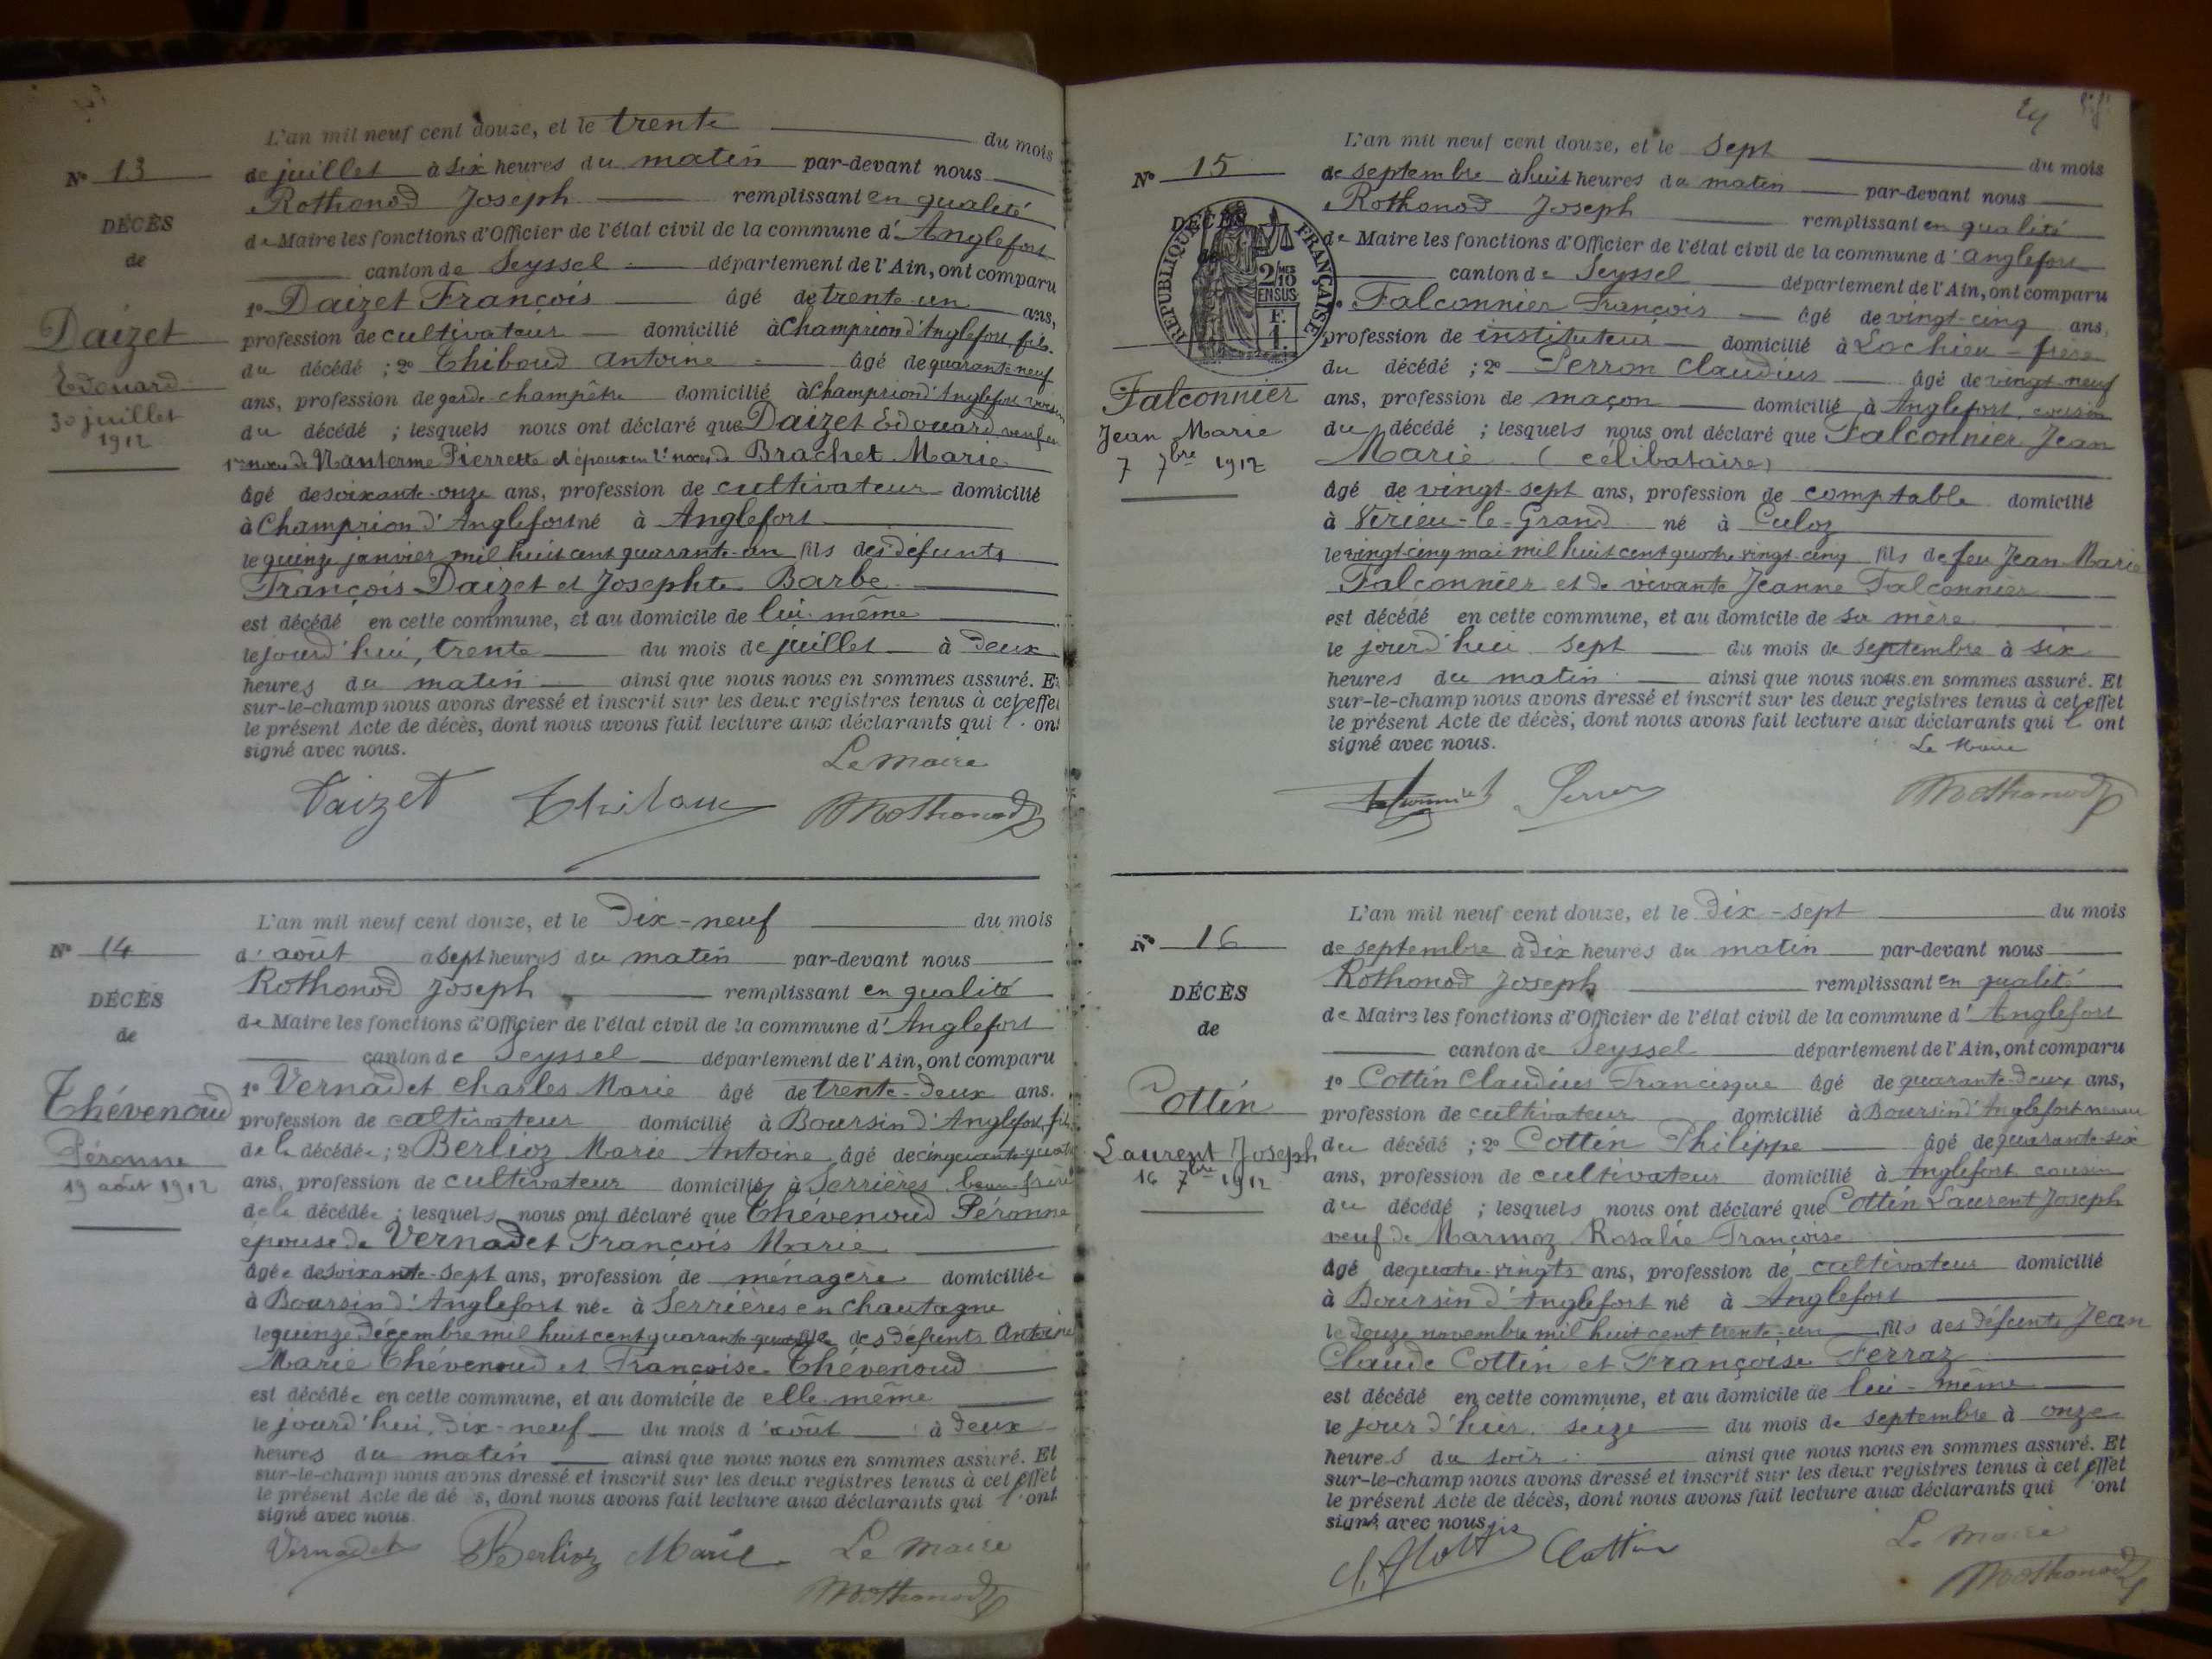 L'an mil neuf cent douze, et le trente du mois
N° 13
de juillet à six heures du matin par-devant nous
Rothonod Joseph remplissant en qualité
DÉCÈS
de Maire les fonctions d'Officier de l'état civil de la commune d'Anglefort
de
canton de Seyssel département de l'Ain, ont comparu
1° Daizet François âgé de trente-un ans,
Daizet
profession de cultivateur domicilié à Champrion d'Anglefort, fils
du décédé ; 2° Thiboud Antoine âgé de quarante neuf
Edouard
ans, profession de garde champêtre domicilié à Champrion d'Anglefort voisin
30 juillet
1912
du décédé ; lesquels nous ont déclaré que Daizet Edouard, veuf en
1res noces de Nanterme Pierrette et époux en 2es noces de Brachet Marie
âgé de soixante-onze ans, profession de cultivateur domicilié
à Champrion d'Anglefort né à Anglefort
le quinze janvier mil huit cent quarante-un fils des défunts
François Daizet et Josephte Barbe
est décédé en cette commune, et au domicile de lui-même
le jourd'hui, trente du mois de juillet à deux
heures du matin ainsi que nous nous en sommes assuré. Et
sur-le-champ nous avons dressé et inscrit sur les deux registres tenus à cet effet
le présent Acte de décès, dont nous avons fait lecture aux déclarants qui l'ont
signé avec nous.
Le Maire
Daizet Thiboud Rothonod
L'an mil neuf cent douze, et le dix-neuf du mois
N° 14
d'août à sept heures du matin par-devant nous
Rothonod Joseph remplissant en qualité
DÉCÈS
de Maire les fonctions d'Officier de l'état civil de la commune d'Anglefort
de
canton de Seyssel département de l'Ain, ont comparu
1° Vernadet Charles Marie âgé de trente-deux ans.
Thévenoud
profession de cultivateur domicilié à Boursin d'Anglefort, fils
de la décédée ; 2° Berlioz Marie Antoine âgé de cinquante-quatre
Péronne
ans, profession de cultivateur domicilié à Serrières, beau-frère
19 août 1912
de la décédée ; lesquels nous ont déclaré que Thévenoud Péronne
épouse de Vernadet François Marie
âgée de soixante-sept ans, profession de ménagère domiciliée
à Boursin d'Anglefort née à Serrières en Chautagne
le quinze décembre mil huit cent quarante-quatre fille des défunts Antoine
Marie Thévenoud et Françoise Thévenoud
est décédée en cette commune, et au domicile de elle-même
le jourd'hui, dix-neuf du mois d'août à deux
heures du matin ainsi que nous nous en sommes assuré. Et
sur-le-champ nous avons dressé et inscrit sur les deux registres tenus à cet effet
le présent Acte de dé s, dont nous avons fait lecture aux déclarants qui l'ont
signé avec nous
Vernadet Berlioz Marie Le Maire
Rothonod
24
L'an mil neuf cent douze, et le sept du mois
N° 15
de septembre à huit heures du matin par-devant nous
Rothonod Joseph remplissant en qualité
DÉCÈS
de
RÉPUBLIQUE FRANÇAISE
2/10 MES
EN SUS
F.
1.
de Maire les fonctions d'Officier de l'état civil de la commune d'Anglefort
canton de Seyssel département de l'Ain, ont comparu
1° Falconnier François âgé de vingt-cinq ans,
profession de instituteur domicilié à Lochieu - frère
du décédé ; 2° Perron Claudius âgé de vingt-neuf
Falconnier
ans, profession de maçon domicilié à Anglefort, cousin
Jean Marie
du décédé ; lesquels nous ont déclaré que Falconnier Jean
7 7bre 1912
Marie (célibataire)
âgé de vingt-sept ans, profession de comptable domicilié
à Virieu-le-Grand né à Culoz
le vingt-cinq mai mil huit cent quatre vingt-cinq fils de feu Jean Marie
Falconnier et de vivante Jeanne Falconnier
est décédé en cette commune, et au domicile de sa mère
le jourd'hui sept du mois de septembre à six
heures du matin ainsi que nous nous en sommes assuré. Et
sur-le-champ nous avons dressé et inscrit sur les deux registres tenus à cet effet
le présent Acte de décès, dont nous avons fait lecture aux déclarants qui l'ont
signé avec nous.
Le Maire
Falconnier Perron Rothonod
L'an mil neuf cent douze, et le dix-sept du mois
N° 16
de septembre à dix heures du matin par-devant nous
Rothonod Joseph remplissant en qualité
DÉCÈS
de Maire les fonctions d'Officier de l'état civil de la commune d'Anglefort
de
canton de Seyssel département de l'Ain, ont comparu
1° Cottin Claudius Francisque âgé de quarante-deux ans,
Cottin
profession de cultivateur domicilié à Boursin d'Anglefort neveu
Laurent Joseph
du décédé ; 2° Cottin Philippe âgé de quarante-six
16 7bre 1912
ans, profession de cultivateur domicilié à Anglefort cousin
du décédé ; lesquels nous ont déclaré que Cottin Laurent Joseph
veuf de Marmoz Rosalie Françoise
âgé de quatre-vingts ans, profession de cultivateur domicilié
à Boursin d'Anglefort né à Anglefort
le douze novembre mil huit cent trente-un fils des défunts Jean
Claude Cottin et Françoise Ferraz
est décédé en cette commune, et au domicile de lui-même
le jour d'hier seize du mois de septembre à onze
heures du soir ainsi que nous nous en sommes assuré. Et
sur-le-champ nous avons dressé et inscrit sur les deux registres tenus à cet effet
le présent Acte de décès, dont nous avons fait lecture aux déclarants qui l'ont
signé avec nous
Cottin Le Maire
Rothonod